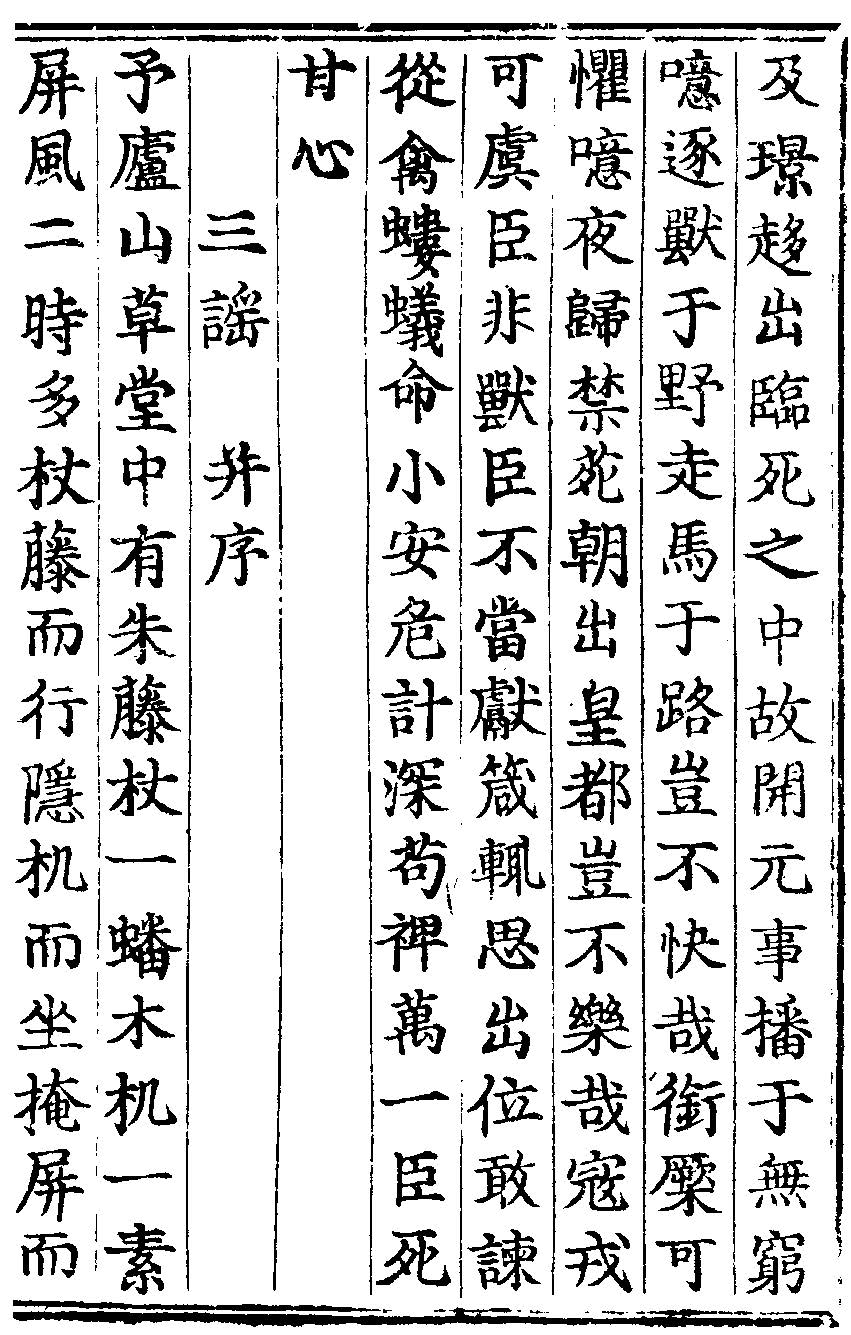 及璟趍出臨死之中故開元事播于無窮
噫逐獸于野走馬于路豈不快哉銜橜可
懼噫夜歸禁苑朝出皇都豈不樂哉寇戎
可虞臣非獸臣不當獻箴輒思出位敢諫
從禽螻蟻命小安危計深苟裨萬一臣死
甘心
三謠　并序
予廬山草堂中有朱藤杖一蟠木机一素
屏風二時多杖藤而行隱机而坐掩屏而